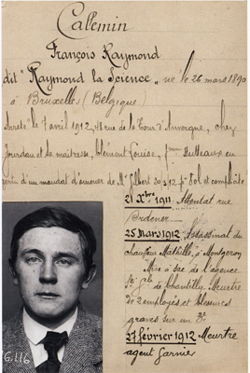 Callemin
François Raymond
dit "Raymond la Science" né le 26 mars 1890
à Bruxelles (Belgique)
Arrêté le 7 avril 1912, 48 rue de la Tour d'Auvergne, chez
Jourdan et sa maîtresse, Clément Louise, fme
d'un mandat d'amener de Mr Gilbert
21 Xbre 1911 Attentat rue
Ordener
25 mars 1912 Assassinat du
chauffeur Mathillé, à Montgeron
Mise à sac de l'agence
Sté Gle de Chantilly. Meurtre
de 2 employés et blessures
graves sur un 3e.
27 février 1912 Meurtre
agent Garnier
G.116